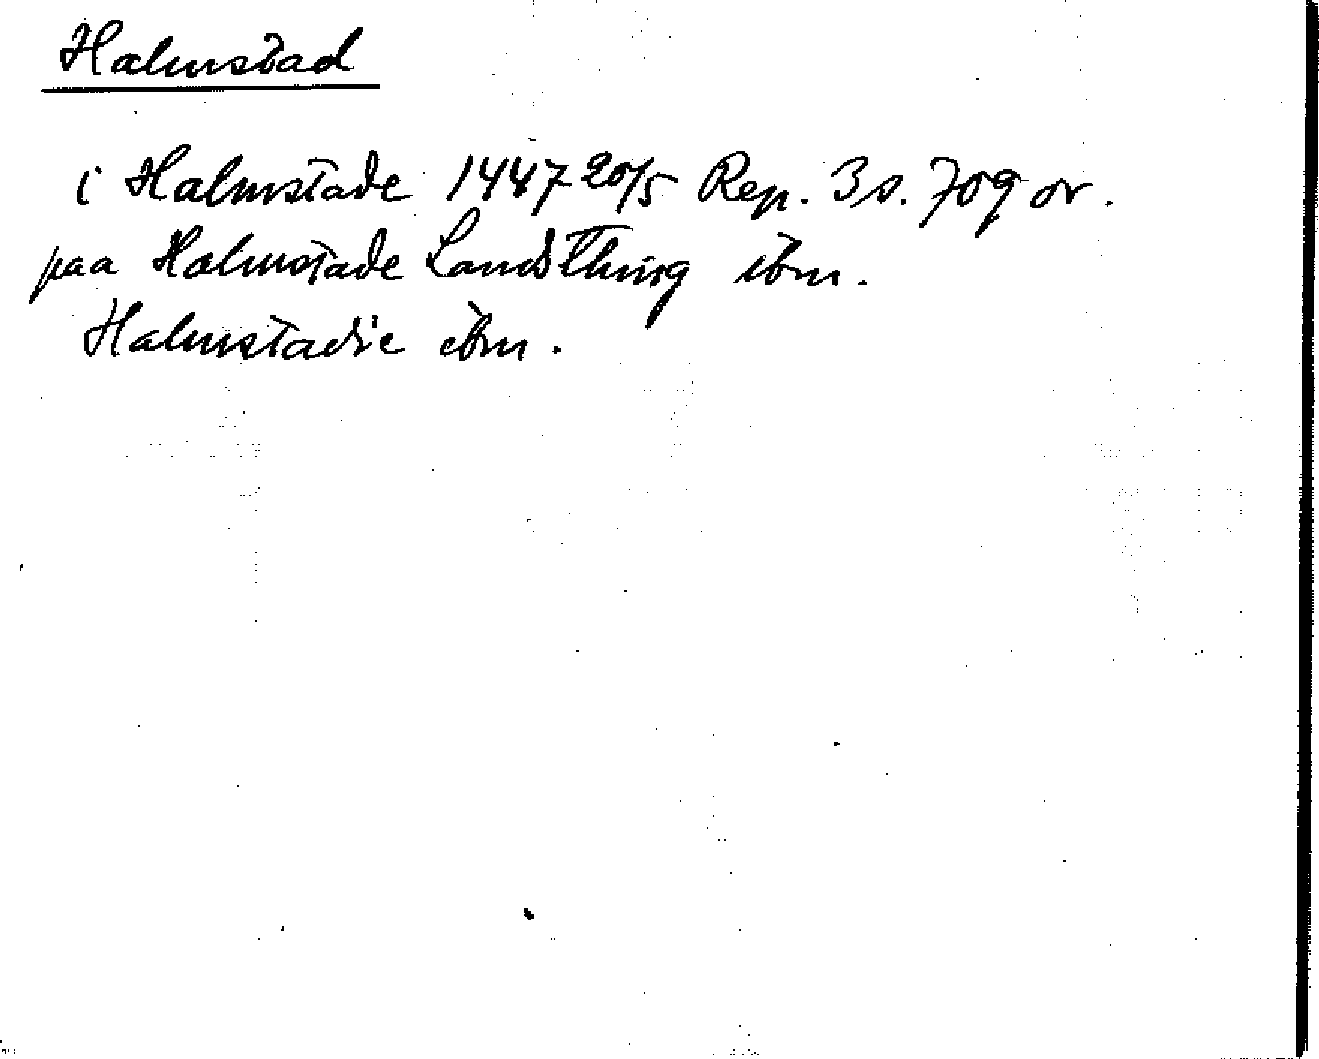 Halmstad
i Halmstade 1447 20/5 Rep. 3 s. 709 or.
paa Halmstade Landsthing ibm.
Halmstadie ibm.